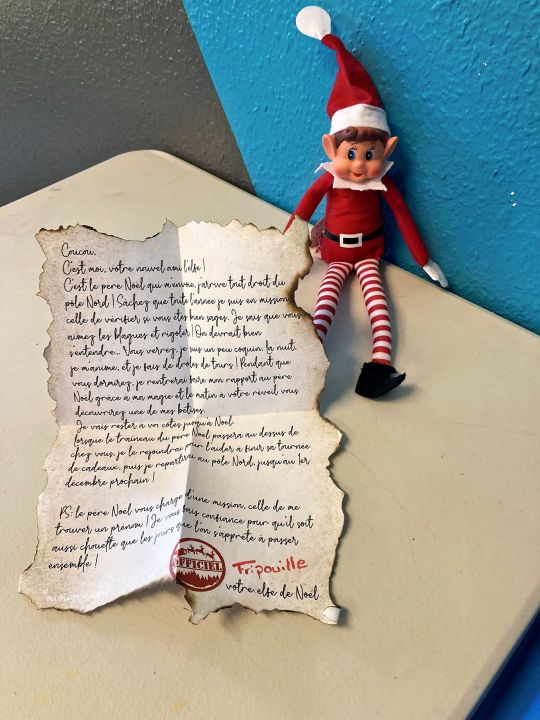 Coucou,
C'est moi, votre nouvel ami l'elfe !
C'est le père Noël qui m'envoie, j'arrive tout droit du
pôle Nord ! Sachez que toute l'année je suis en mission,
celle de vérifier si vous êtes bien sages. Je sais que vous
aimez les blagues et rigoler ! On devrait bien
s'entendre... Vous verrez, je suis un peu coquin. La nuit,
je m'anime, et je fais de drôles de tours ! Pendant que
vous dormirez, je rentrerai faire mon rapport au père
Noël grâce à ma magie et le matin à votre réveil vous
découvrirez une de mes bêtises.
Je vais rester à vo côtés jusqu'à Noël.
Lorsque le traineau du père Noël passera au dessus de
chez vous, je le rejoindrai pour l'aider à finir sa tournée
de cadeaux, puis je repartirai au pôle Nord, jusqu'au 1er
décembre prochain !
PS: le père Noël vous charge d'une mission, celle de me
trouver un prénom ! Je vous fais confiance pour qu'il soit
aussi chouette que les jours que l'on s'apprête à passer
ensemble !
OFFICIEL
Fripouille
votre elfe de Noël